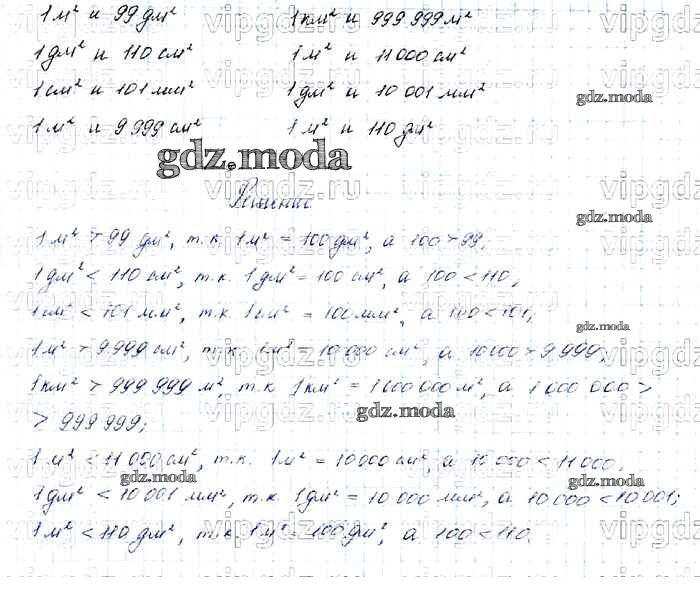 1 м² и 99 дм² 1 км² и 999 999 м²
1 дм² и 110 см² 1 м² и 11 000 см²
1 см² и 101 мм² 1 дм² и 10 001 мм²
gdz.moda
1 м² и 9 999 см² 1 м² и 110 дм²
gdz.moda
Решение
gdz.moda
1 м² > 99 дм², т.к. 1 м² = 100 дм², а 100 > 99;
1 дм² < 110 см², т.к. 1 дм² = 100 см², а 100 < 110;
1 см² < 101 мм², т.к. 1 см² = 100 мм², а 100 < 101;
gdz.moda
1 м² > 9 999 см², т.к. 1 м² = 10 000 см², а 10 000 > 9 999;
1 км² > 999 999 м², т.к 1 км² = 1 000 000 м², а 1 000 000 >
gdz.moda
> 999 999;
1 м² < 11 000 см², т.к. 1 м² = 10 000 см², а 10 000 < 11 000;
gdz.moda gdz.moda
1 дм² < 10 001 мм², т.к. 1 дм² = 10 000 мм², а 10 000 < 10 001;
1 м² < 110 дм², т.к. 1 м² = 100 дм², а 100 < 110.